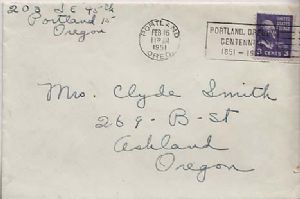 203 S E 45th
Portland 15
Oregon
PORTLAND
FEB 16
1951
OREG.
PORTLAND, OREGON
CENTENNIAL
1851 - 1951
UNITED STATES
3 CENTS 3
Mrs. Clyde Smith
269 - B - St
Ashland
Oregon